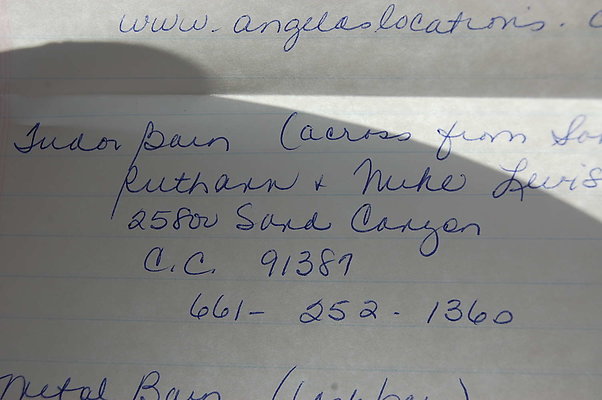 www. angelaslocations.
Tudor Barn (across from
Ruthann + Mike Lewis
25800 Sand Canyon
C.C. 91387
661- 252- 1360
Metal Barn (